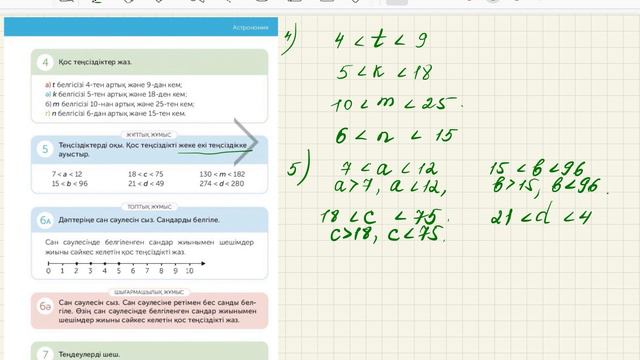 Астрономия
4 Қос теңсіздіктер жаз.
а) t белгісізі 4-тен артық және 9-дан кем;
ә) k белгісізі 5-тен артық және 18-ден кем;
б) m белгісізі 10-нан артық және 25-тен кем;
г) n белгісізі 6-дан артық және 15-тен кем.
ЖҰПТЫҚ ЖҰМЫС
5 Теңсіздіктерді оқы. Қос теңсіздікті жеке екі теңсіздікке
ауыстыр.
7 < a < 12 18 < c < 75 130 < m < 182
15 < b < 96 21 < d < 49 274 < d < 280
ТОПТЫҚ ЖҰМЫС
6А Дәптеріңе сан сәулесін сыз. Сандарды белгіле.
Сан сәулесінде белгіленген сандар жиынымен шешімдер
жиыны сәйкес келетін қос теңсіздікті жаз.
0 1 2 3 4 5 6 7 8 9 10
ШЫҒАРМАШЫЛЫҚ ЖҰМЫС
6ә Сан сәулесін сыз. Сан сәулесіне ретімен бес санды бел-
гіле. Өзің сан сәулесінде белгілеген сандар жиынымен
шешімдер жиыны сәйкес келетін қос теңсіздікті жаз.
7 Теңдеулерді шеш.
4) 4 < t < 9
5 < k < 18
10 < m < 25.
6 < n < 15
5) 7 < a < 12 15 < b < 96
a > 7, a < 12, b > 15, b < 96.
18 < c < 75. 21 < d < 4
c > 18, c < 75.